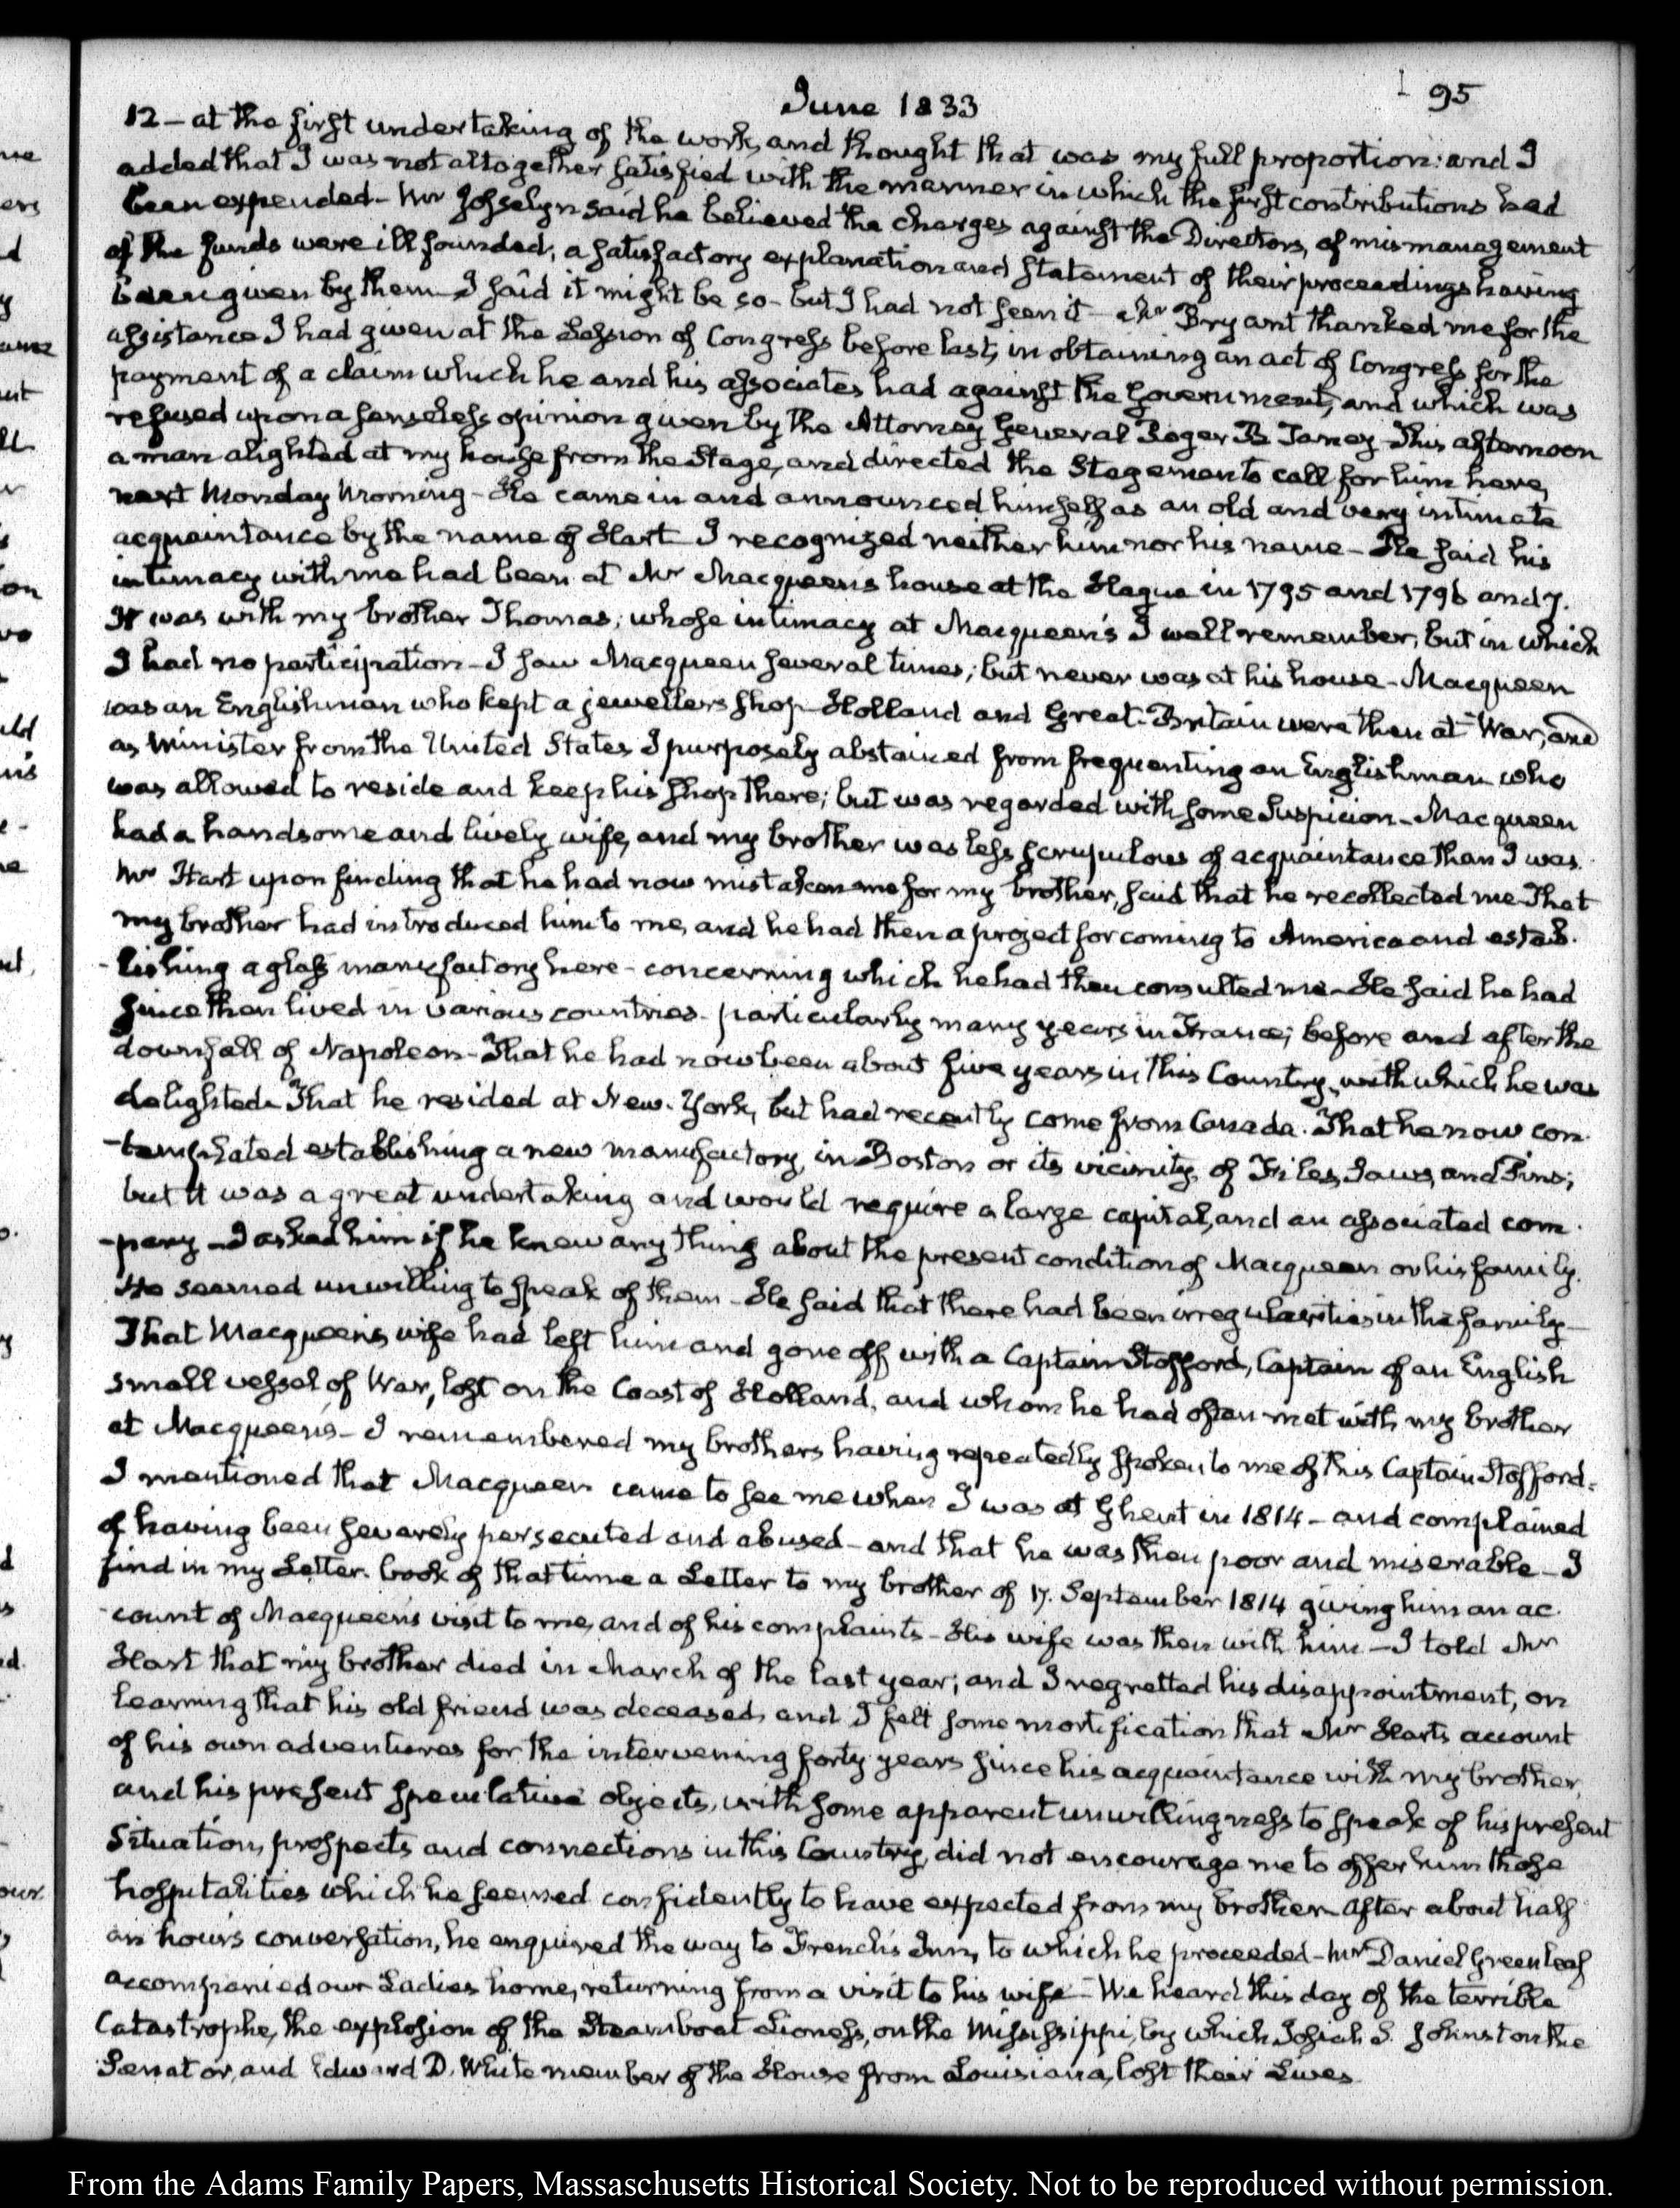 June 1833
95
12 — at the first undertaking of the work, and thought that was my full proportion: and I
added that I was not altogether satisfied with the manner in which the first contributions had
been expended — Mr Josselyn said he believed the charges against the Directors, of mismanagement
of the funds were ill founded; a satisfactory explanation and statement of their proceedings having
been given by them — I said it might be so — but I had not seen it — Mr Bryant thanked me for the
assistance I had given at the Session of Congress before last, in obtaining an act of Congress for the
payment of a claim which he and his associates had against the Government, and which was
refused upon a senseless opinion given by the Attorney General Roger B Taney — This afternoon
a man alighted at my house from the Stage, and directed the Stageman to call for him here,
next Monday Morning — He came in and announced himself as an old and very intimate
acquaintance by the name of Hart I recognized neither him nor his name — He said his
intimacy with me had been at Mr Macqueen's house at the Hague in 1795 and 1796 and 7.
It was with my brother Thomas, whose intimacy at Macqueen's I well remember, but in which
I had no participation — I saw Macqueen several times; but never was at his house — Macqueen
was an Englishman who kept a jewellers shop — Holland and Great-Britain were then at War, and
as Minister from the United States I purposely abstained from frequenting an Englishman who
was allowed to reside and keep his shop there; but was regarded with some Suspicion — Macqueen
had a handsome and lively wife, and my brother was less scrupulous of acquaintance than I was.
Mr Hart upon finding that he had now mistaken me for my brother, said that he recollected me — That
my brother had introduced him to me, and he had then a project for coming to America and estab-
-lishing a glass manufactory here — concerning which he had then consulted me — He said he had
since then lived in various countries — particularly many years in France; before and after the
downfall of Napoleon — That he had now been about five years in this Country, with which he was
delighted. That he resided at New-York, but had recently come from Canada. That he now con-
-templated establishing a new manufactory, in Boston or its vicinity, of Files, Saws, and Pins;
but it was a great undertaking and would require a large capital, and an associated com-
-pany — I asked him if he knew any thing about the present condition of Macqueen or his family.
He seemed unwilling to speak of them — He said that there had been irregularities in the family —
That Macqueen's wife had left him and gone off with a Captain Stofford, Captain of an English
small vessel of War, lost on the Coast of Holland, and whom he had often met with my brother
at Macqueen's — I remembered my brothers having repeatedly spoken to me of this Captain Stofford.
I mentioned that Macqueen came to see me when I was at Ghent in 1814 — and complained
of having been severely persecuted and abused — and that he was then poor and miserable — I
find in my Letter-book of that time a Letter to my brother of 17. September 1814 giving him an ac-
-count of Macqueen's visit to me, and of his complaints — His wife was then with him — I told Mr
Hart that my brother died in March of the last year; and I regretted his disappointment, on
learning that his old friend was deceased, and I felt some mortification that Mr Harts account
of his own adventures for the intervening forty years since his acquaintance with my brother,
and his present speculative objects, with some apparent unwillingness to speak of his present
Situation, prospects and connections in this Country, did not encourage me to offer him those
hospitalities which he seemed confidently to have expected from my brother — After about half
an hour's conversation, he enquired the way to French's Inn, to which he proceeded — Mr Daniel Greenleaf
accompanied our Ladies home, returning from a visit to his wife — We heard this day of the terrible
Catastrophe, the explosion of the Steamboat Lioness, on the Mississippi, by which Josiah S. Johnston the
Senator, and Edward D. White member of the House from Louisiana, lost their Lives
From the Adams Family Papers, Massachusetts Historical Society. Not to be reproduced without permission.